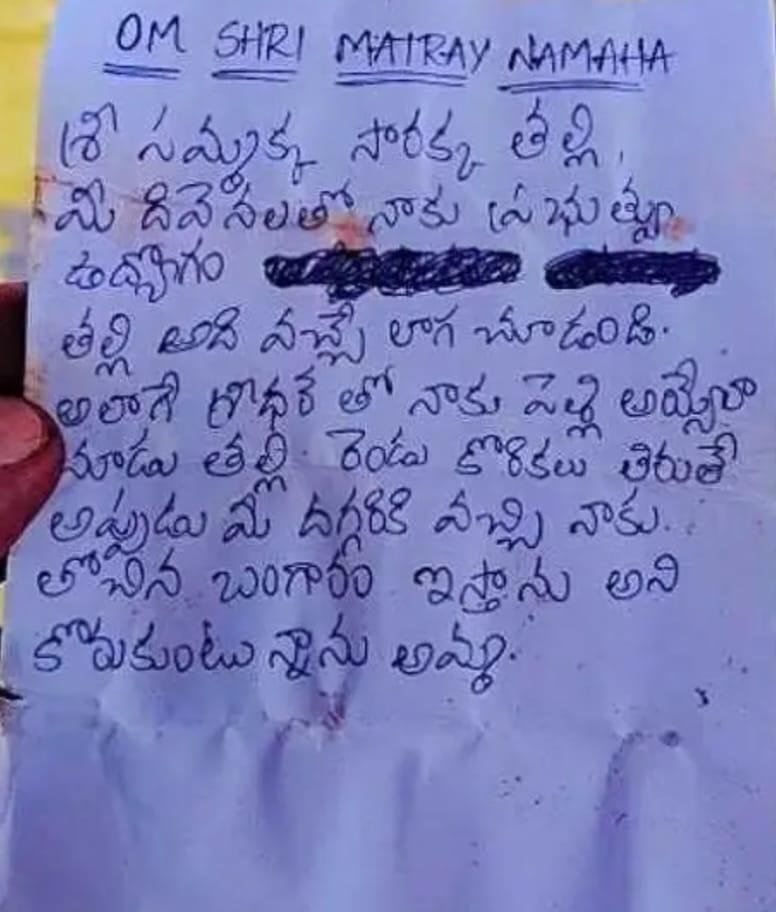 OM SHRI MATRAY NAMAHA
శ్రీ సమ్మక్క సారక్క తల్లి,
మీ దివెనలతో నాకు ప్రభుత్వ
ఉద్యోగం
తల్లి అది వచ్చే లాగ చూడండి.
అలాగే తో నాకు పెళ్లి అయ్యేలా
చూడు తల్లి. రెండు కోరికలు తిరుతే
అప్పుడు మీ దగ్గరికి వచ్చి నాకు.
తోచిన బంగారం ఇస్తాను అని
కోరుకుంటున్నాను అమ్మ.